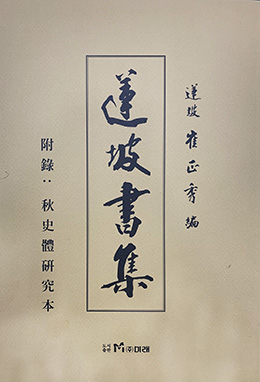 蓮坡 崔正秀 編
蓮坡書集
附錄 : 秋史體硏究本
도서
출판 M (주)미래